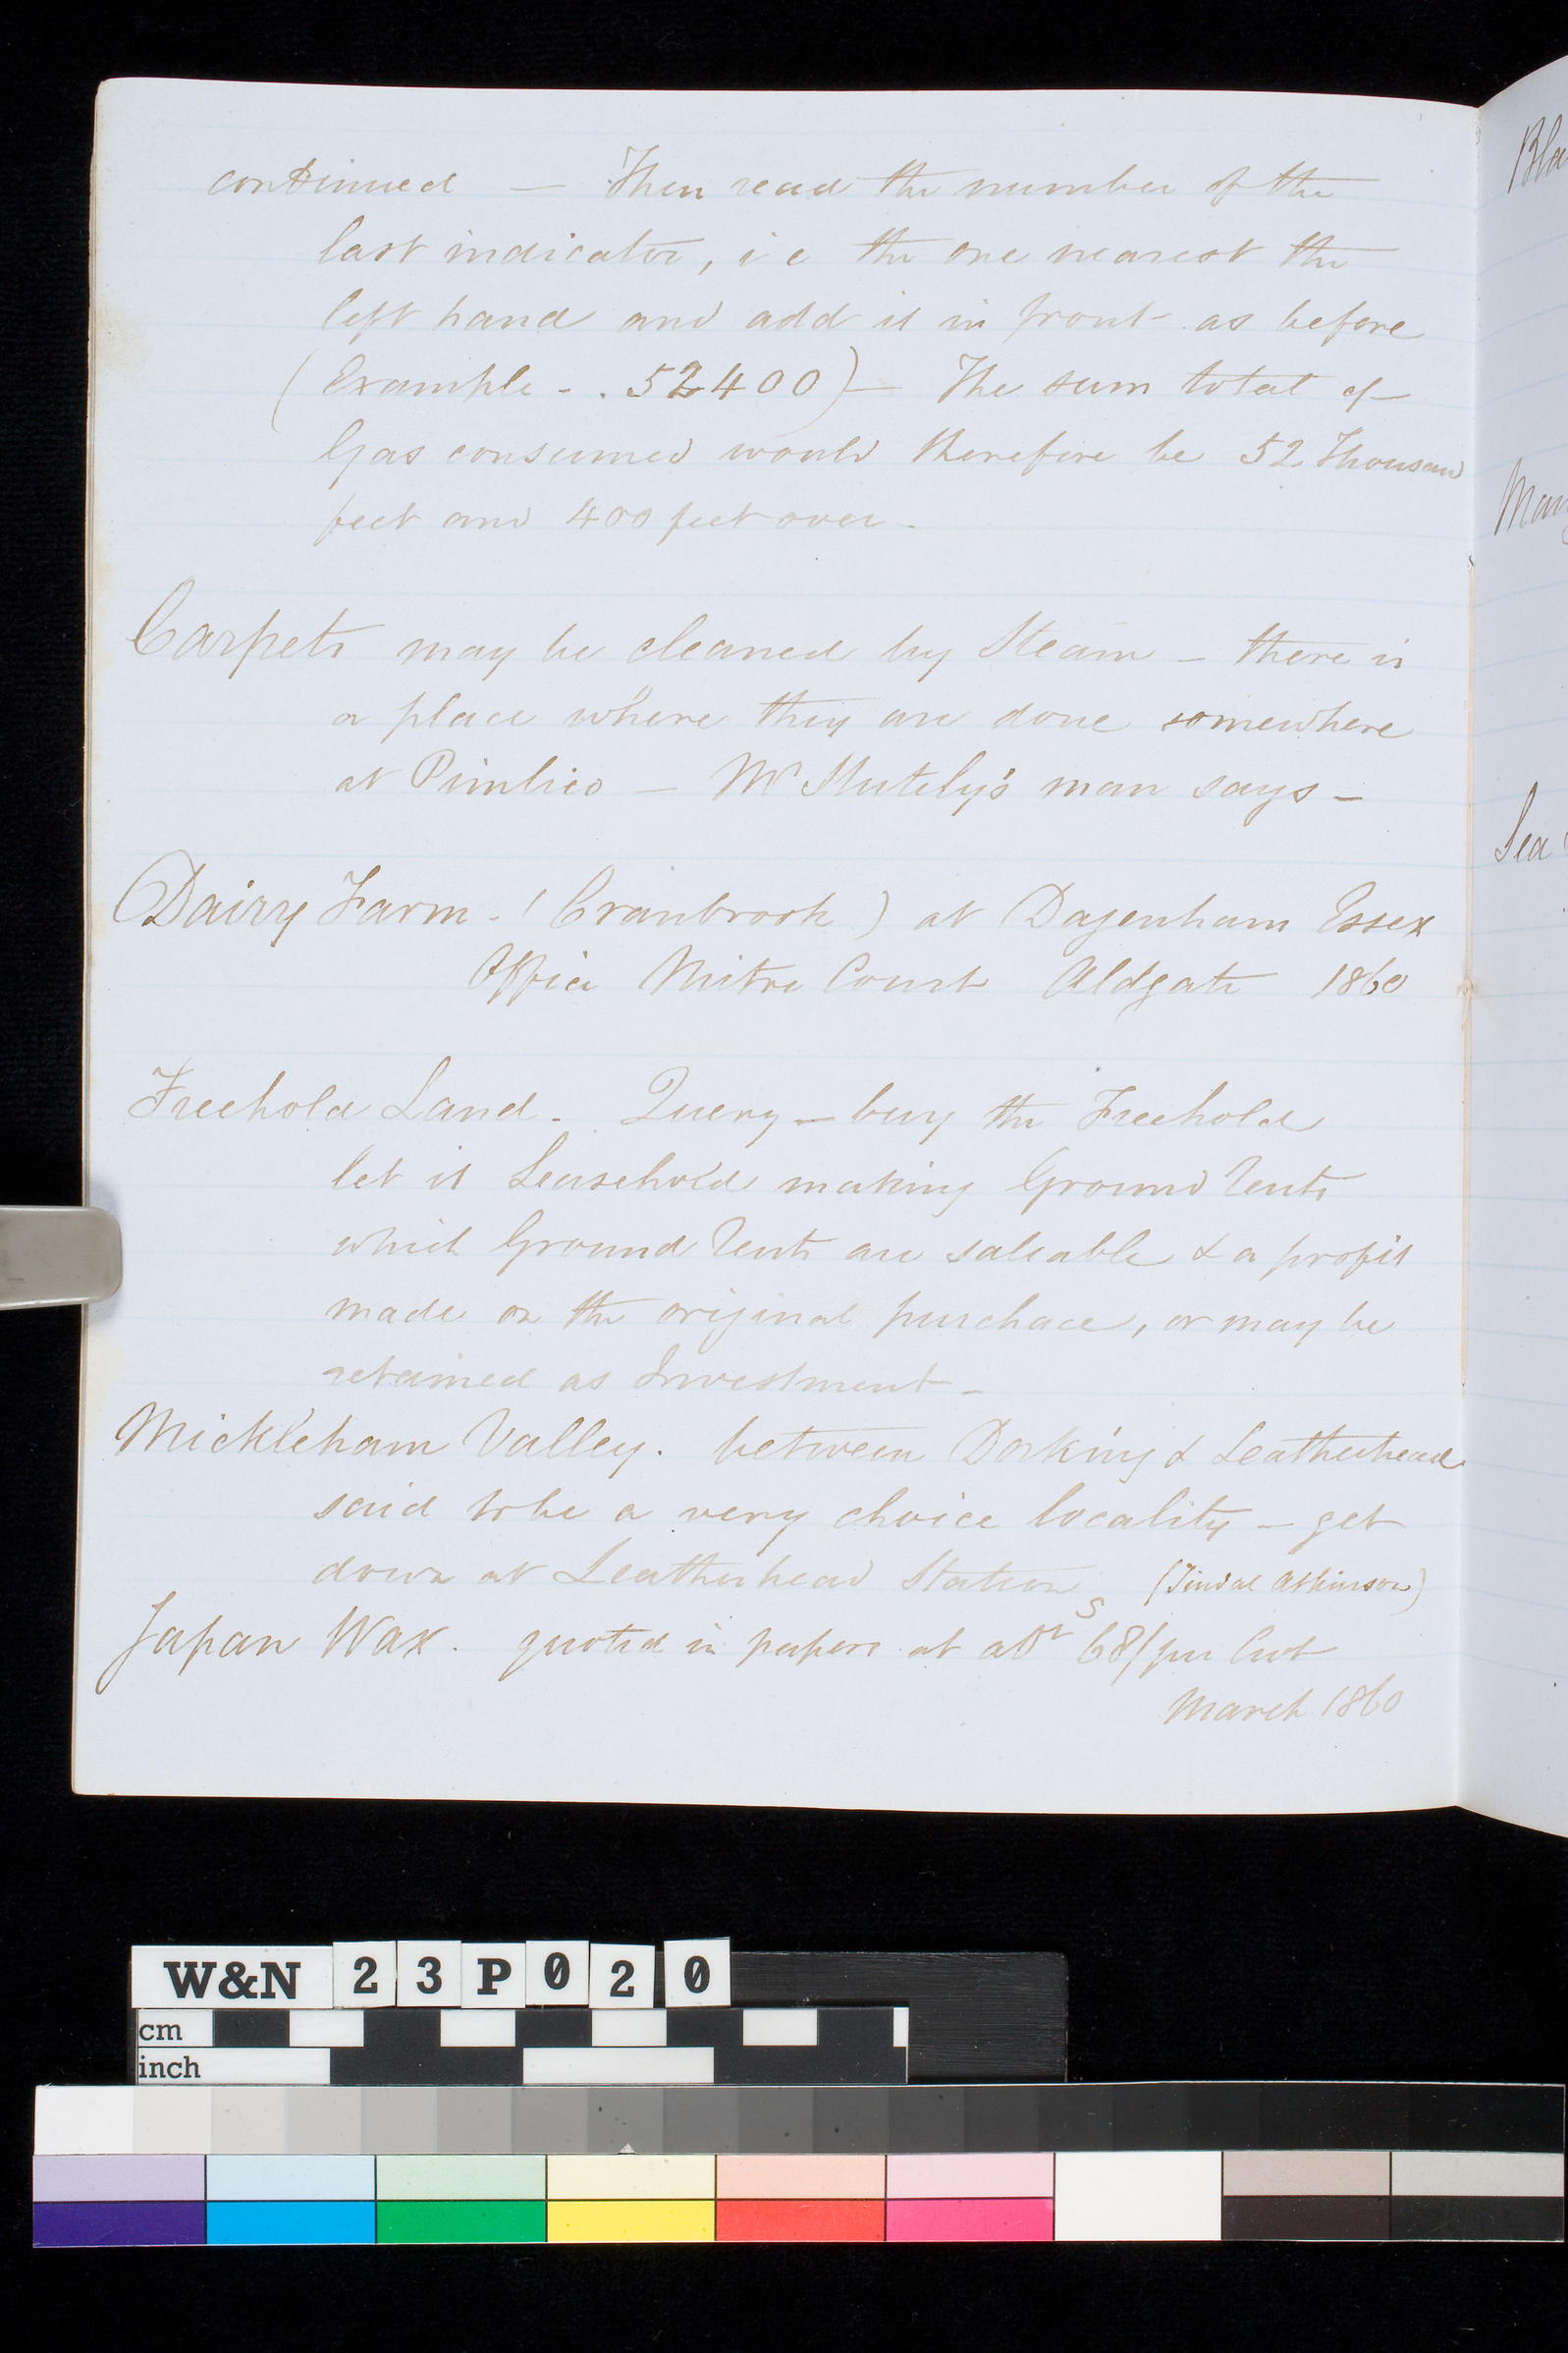 continued — Then read the number of the
last indicator, i e the one nearest the
left hand and add it in front as before
(Example - . 52400) — The sum total of
Gas consumed would therefore be 52 Thousand
feet and 400 feet over -
Carpets may be cleaned by Steam — there is
a place where they are done somewhere
at Pimlico — Mr Stutely's man says —
Dairy Farm - (Cranbrook) at Dagenham Essex
Office Mitre Court Aldgate 1860
Freehold Land - Query — buy the Freehold
let it Leasehold making Ground Rents
which Ground Rents are saleable & a profit
made on the original purchace, or may be
retained as Investment —
Mickleham Valley. between Dorking & Leatherhead
said to be a very choice locality — get
down at Leatherhead Station (Tindal Atkinson)
Japan Wax. quoted in papers at abt 68s/ per Cwt
March 1860
Bla
Man
Sea
W&N 23P020
cm
inch